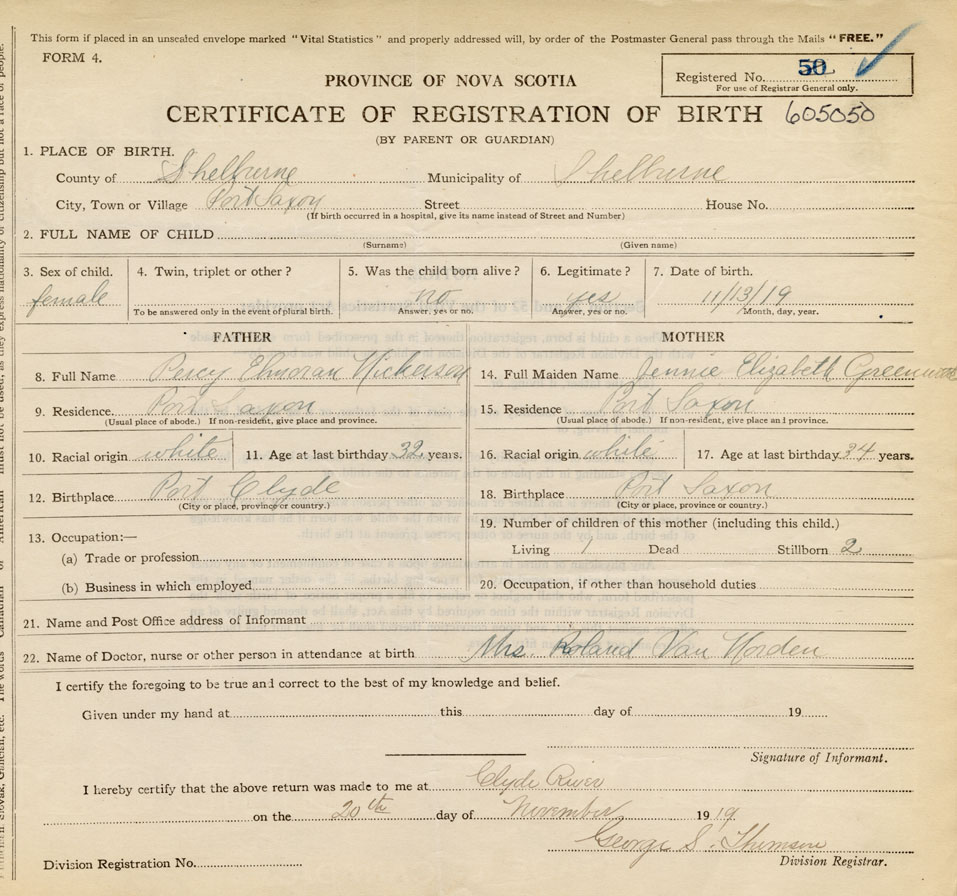 This form if placed in an unsealed envelope marked "Vital Statistics" and properly addressed will, by order of the Postmaster General pass through the Mails "FREE."
FORM 4.
Registered No. 50
For use of Registrar General only.
PROVINCE OF NOVA SCOTIA
CERTIFICATE OF REGISTRATION OF BIRTH 605050
(BY PARENT OR GUARDIAN)
1. PLACE OF BIRTH.
County of Shelburne Municipality of Shelburne
City, Town or Village Port Saxon Street House No.
(If birth occurred in a hospital, give its name instead of Street and Number)
2. FULL NAME OF CHILD
(Surname) (Given name)
3. Sex of child. 4. Twin, triplet or other? 5. Was the child born alive? 6. Legitimate? 7. Date of birth.
female no yes 11/13/19
To be answered only in the event of plural birth. Answer, yes or no. Answer, yes or no. Month, day, year.
FATHER MOTHER
8. Full Name Percy Elmoran Nickerson 14. Full Maiden Name Jennie Elizabeth Greenwood
9. Residence. Port Saxon 15. Residence Port Saxon
(Usual place of abode.) If non-resident, give place and province. (Usual place of abode.) If non-resident, give place and province.
10. Racial origin white 11. Age at last birthday 32 years. 16. Racial origin white 17. Age at last birthday 34 years.
12. Birthplace Port Clyde 18. Birthplace Port Saxon
(City or place, province or country.) (City or place, province or country.)
13. Occupation:— 19. Number of children of this mother (including this child.)
(a) Trade or profession Living 1 Dead Stillborn 2
(b) Business in which employed 20. Occupation, if other than household duties
21. Name and Post Office address of Informant
22. Name of Doctor, nurse or other person in attendance at birth Mrs. Roland Van Norden
I certify the foregoing to be true and correct to the best of my knowledge and belief.
Given under my hand at this day of 19
Signature of Informant.
I hereby certify that the above return was made to me at Clyde River
on the 20th day of November 1919
George S. Thomson
Division Registration No. Division Registrar.